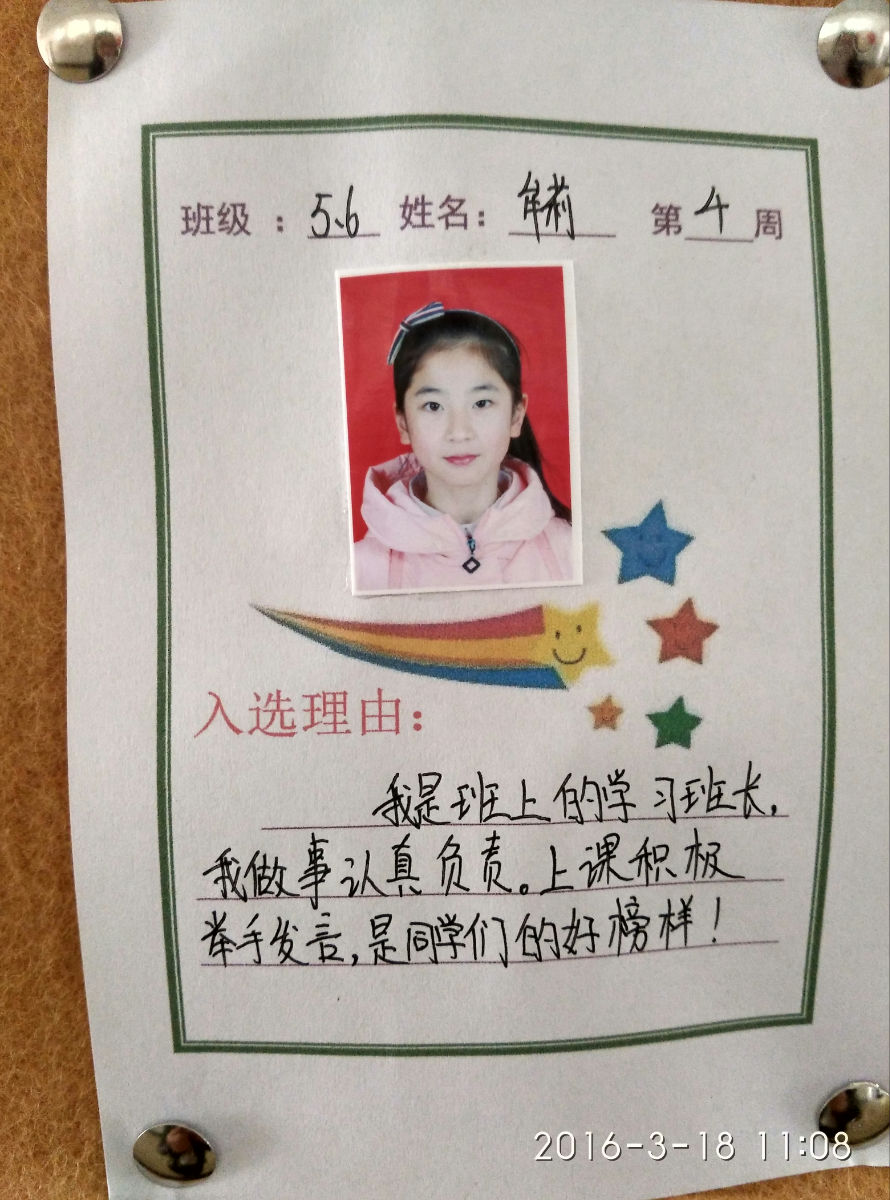 班级：5.6 姓名： 第4周
入选理由：
我是班上的学习班长，
我做事认真负责。上课积极
举手发言，是同学们的好榜样！
2016-3-18 11:08